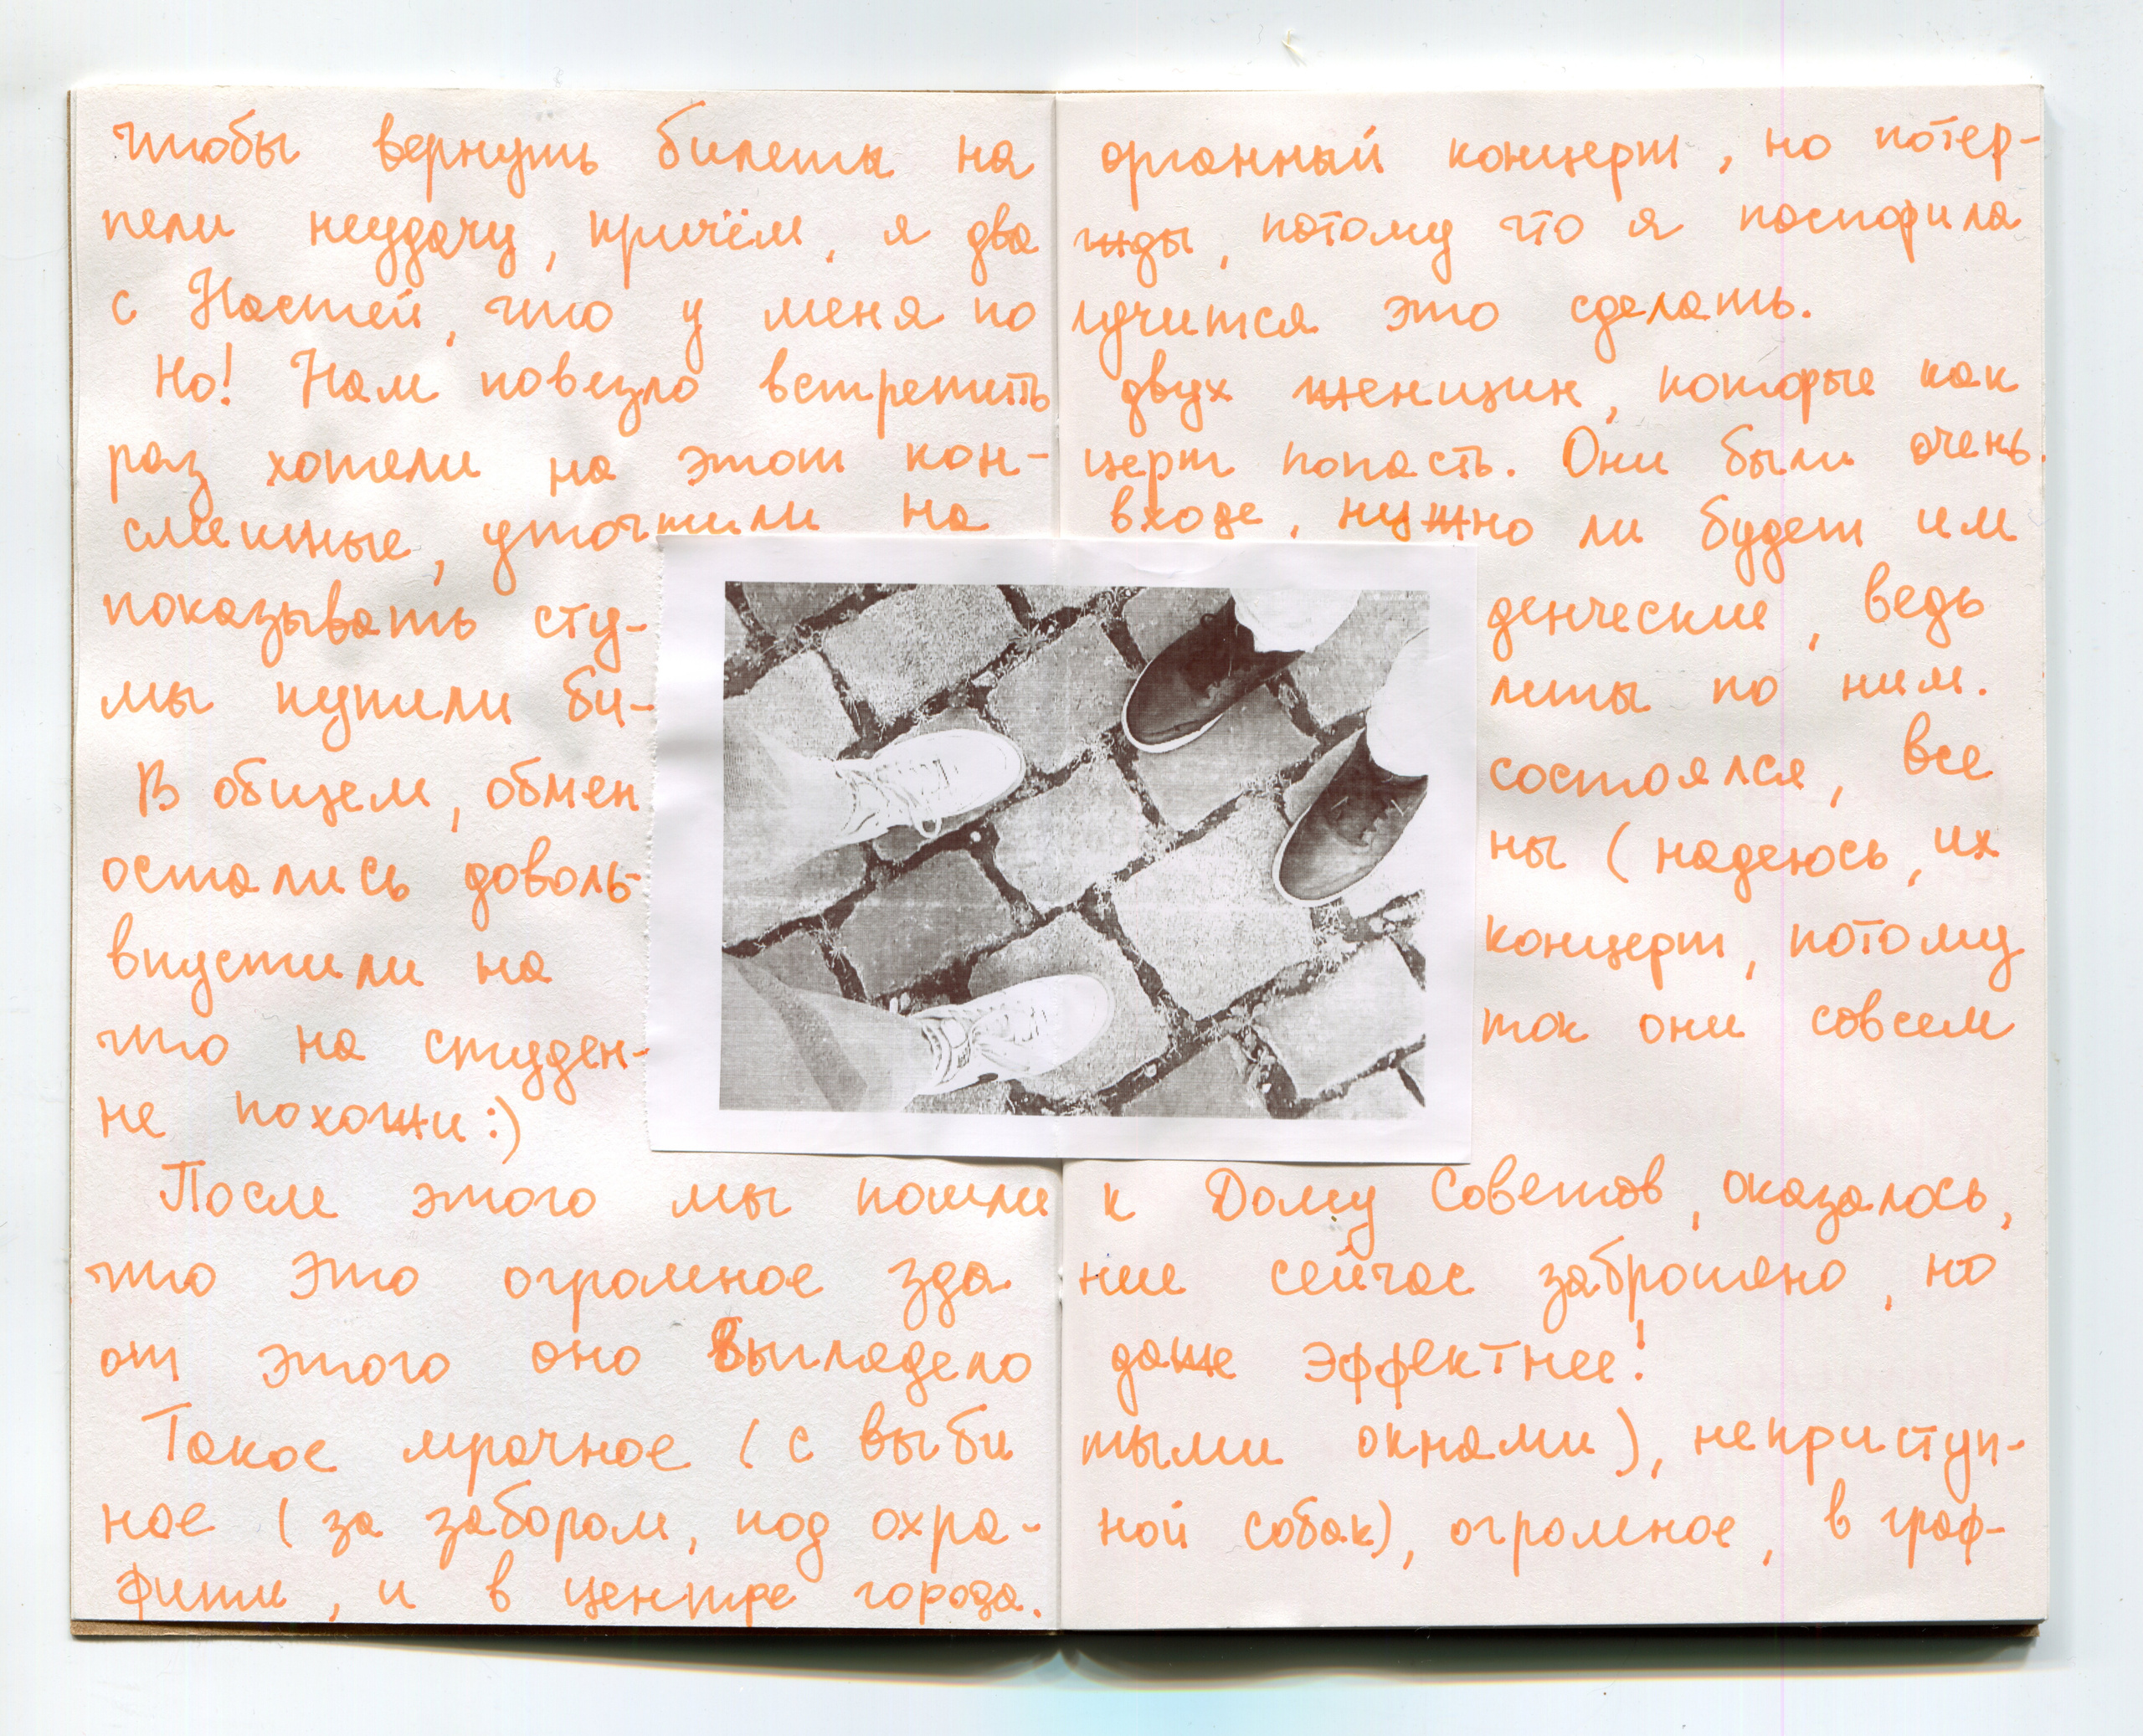 чтобы вернуть билеты на органный концерт, но потер-
пели неудачу, причём, я два жды, потому что я поспорила
с Настей, что у меня по лучится это сделать.
Но! Нам повезло встретить двух женщин, которые как
раз хотели на этот кон- церт попасть. Они были очень
смешные, уточнили на входе, нужно ли будет им
показывать сту- денческие, ведь
мы купили би- леты по ним.
В общем, обмен состоялся, все
остались доволь- ны (надеюсь, их
впустили на концерт, потому
что на студен- ток они совсем
не похожи :)
После этого мы пошли к Дому Советов, оказалось,
что это огромное зда ние сейчас заброшено, но
от этого оно выглядело даже эффектнее!
Такое мрачное (с выби тыми окнами), неприступ-
ное (за забором, под охра- ной собак), огромное, в граф-
фити, и в центре города.